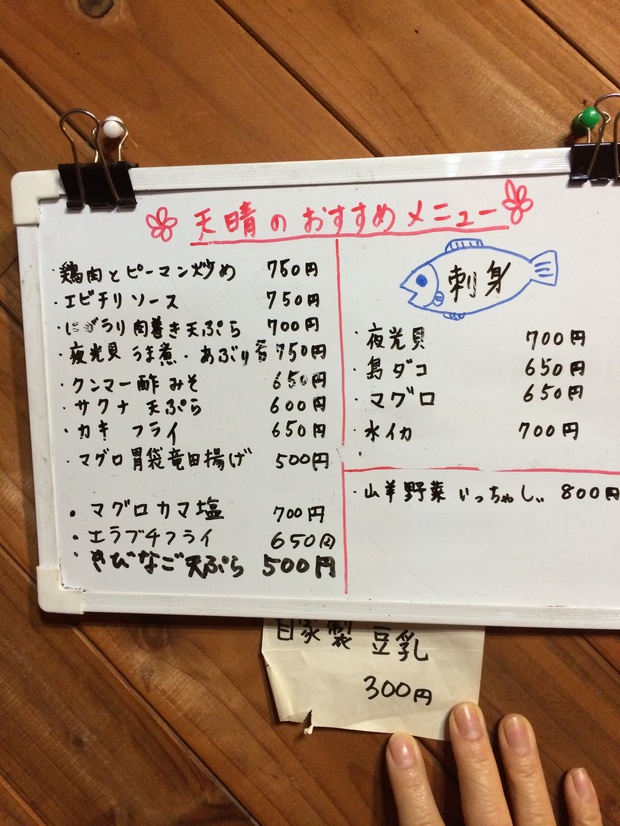 天晴のおすすめメニュー
・鶏肉とピーマン炒め 750円
・エビチリソース 750円
肉巻き天ぷら 700円
・夜光貝 うま煮・あぶり 各750円
・クンマー酢みそ 650円
・サクナ 天ぷら 600円
・カキ フライ 650円
・マグロ胃袋竜田揚げ 500円
・マグロカマ塩 700円
・エラブチフライ 650円
・きびなご天ぷら 500円
刺身
・夜光貝 700円
・島ダコ 650円
・マグロ 650円
・水イカ 700円
・山羊野菜いっちゃしぃ 800円
自家製 豆乳
300円